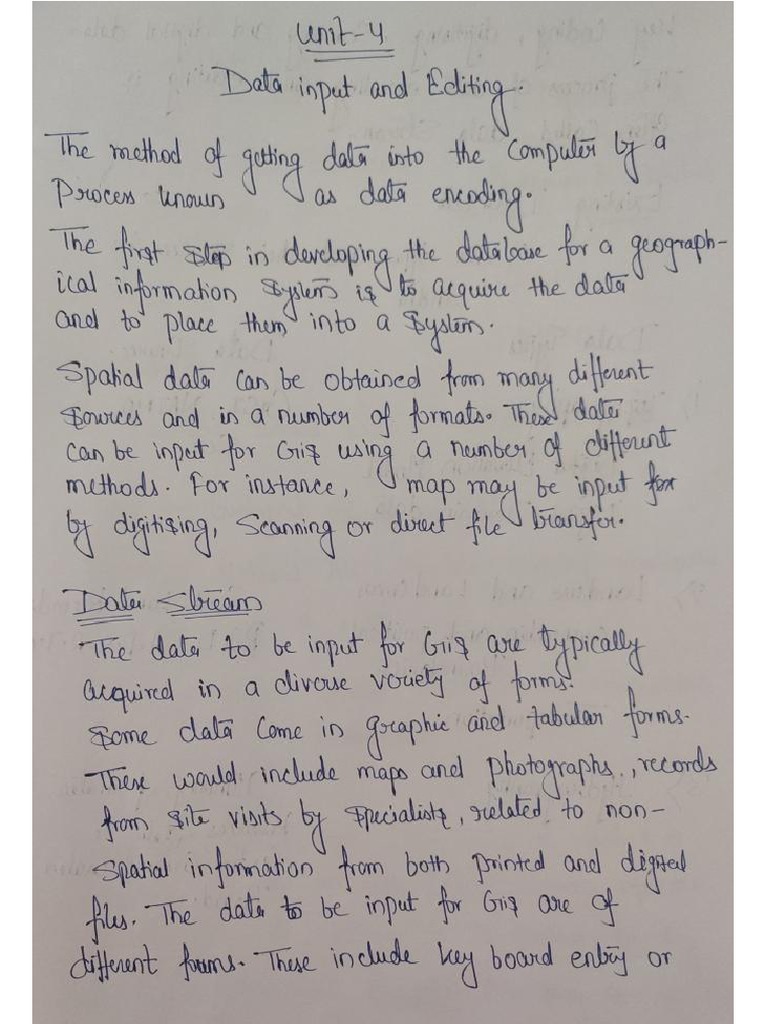 Unit-4
Data input and Editing.
The method of getting data into the computer by a
Process known as data encoding.
The first step in developing the database for a geograph-
ical information system is to acquire the data
and to place them into a system.
Spatial data can be obtained from many different
sources and in a number of formats. These data
can be input for GIS using a number of different
methods. For instance, map may be input for
by digitising, Scanning or direct file transfer.
Data Stream
The data to be input for GIS are typically
acquired in a diverse variety of forms.
Some data come in graphic and tabular forms.
These would include maps and photographs, records
from site visits by specialists, related to non-
Spatial information from both printed and digital
files. The data to be input for GIS are of
different forms. These include key board entry or